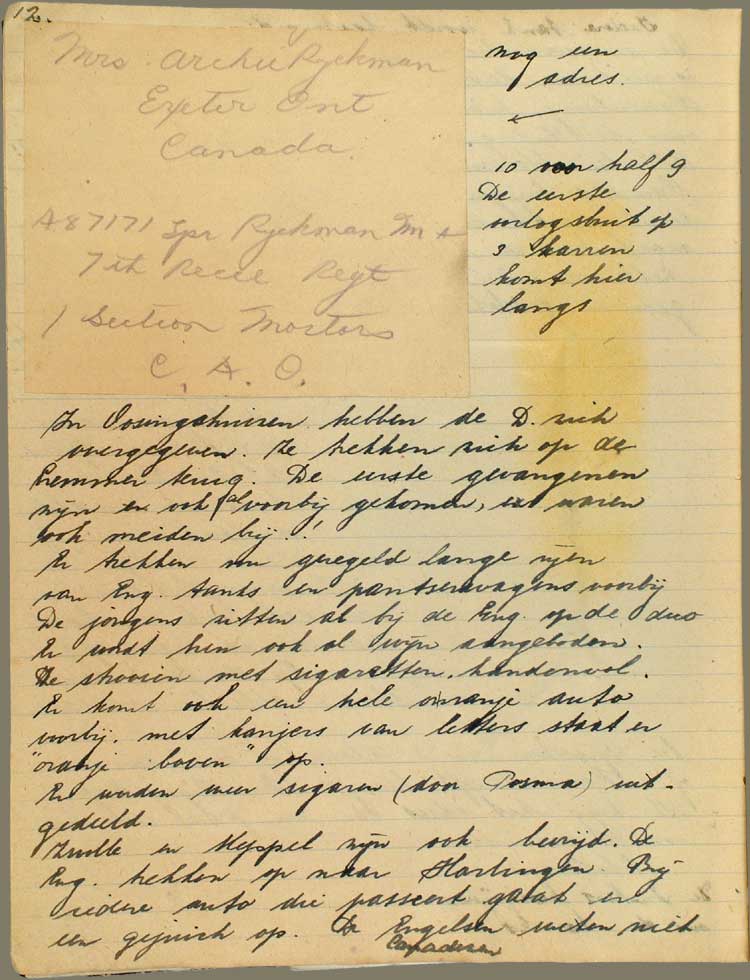 12.
Mrs. Archie Ryckman
Exeter Ont
Canada.
A87171 Spr Ryckman M A
7th Recce Regt
1 Section Mortars
C. A. O.
nog een
adres.
←
10 voor half 9
De eerste
oorlogsbuit op
3 karren
komt hier
langs
In Oosingahuizen hebben de D. zich
overgegeven. Ze trekken zich op de
Lemmer terug. De eerste gevangenen
zijn er ook al voorbij gekomen, er waren
ook meiden bij!!
Er trekken nu geregeld lange rijen
van Eng. tanks en pantserwagens voorbij
De jongens zitten al bij de Eng. op de duo
Er wordt hen ook al wijn aangeboden.
Ze strooien met sigaretten. handenvol.
Er komt ook een hele oranje auto
voorbij. met kanjers van letters staat er
"oranje boven" op.
Er worden weer sigaren (door Posma) uit-
gedeeld.
Zwolle en Meppel zijn ook bevrijd. De
Eng. trekken op naar Harlingen. Bij
iedere auto die passeert gaat er
een gejuich op. De Engelsen weten niet
Canadezen